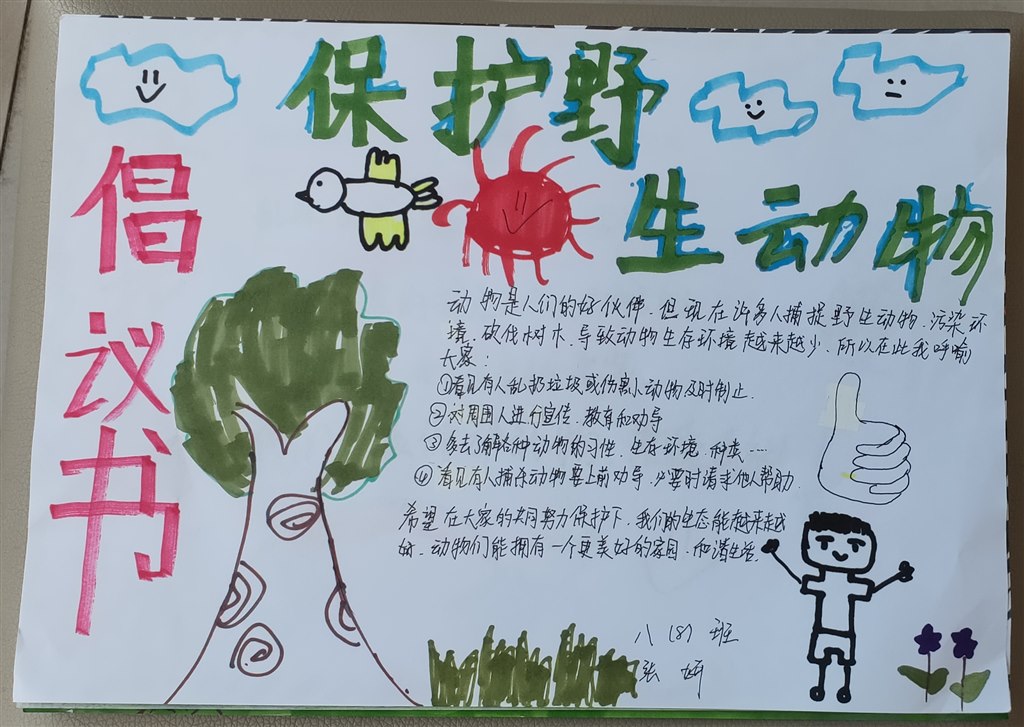 保护野
生动物
倡议书
动物是人们的好伙伴.但现在许多人捕捉野生动物.污染环
境.砍伐树木.导致动物生存环境越来越少.所以在此我呼喻
大家:
①看见有人乱扔垃圾或伤害小动物及时制止.
②对周围人进行宣传.教育和劝导
③多去了解各种动物的习性.生存环境.种类....
④看见有人捕杀动物要上前劝导.必要时请求他人帮助.
希望在大家的共同努力保护下.我们的生态能越来越
好.动物们能拥有一个更美好的家园.和谐生活.
八(8)班
张妍